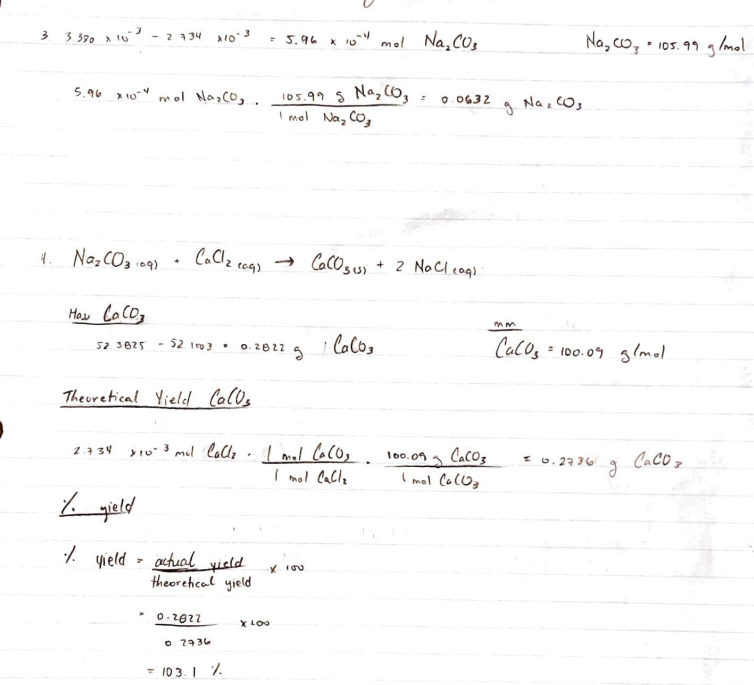 3 3.330 x 10⁻³ - 2.734 x10⁻³ = 5.96 x 10⁻⁴ mol Na₂CO₃ Na₂CO₃ = 105.99 g/mol
5.96 x10⁻⁴ mol Na₂CO₃ · 105.99 g Na₂CO₃ / 1 mol Na₂CO₃ = 0.0632 g Na₂CO₃
4. Na₂CO₃ (aq) + CaCl₂ (aq) → CaCO₃ (s) + 2 NaCl (aq)
Mass CaCO₃ mm
52.3825 - 52.1003 = 0.2822 g CaCO₃ CaCO₃ = 100.09 g/mol
Theoretical Yield CaCO₃
2.734 x10⁻³ mol CaCl₂ · 1 mol CaCO₃ / 1 mol CaCl₂ · 100.09 g CaCO₃ / 1 mol CaCO₃ = 0.2736 g CaCO₃
% yield
% yield = actual yield / theoretical yield x 100
= 0.2822 / 0.2736 x 100
= 103.1 %